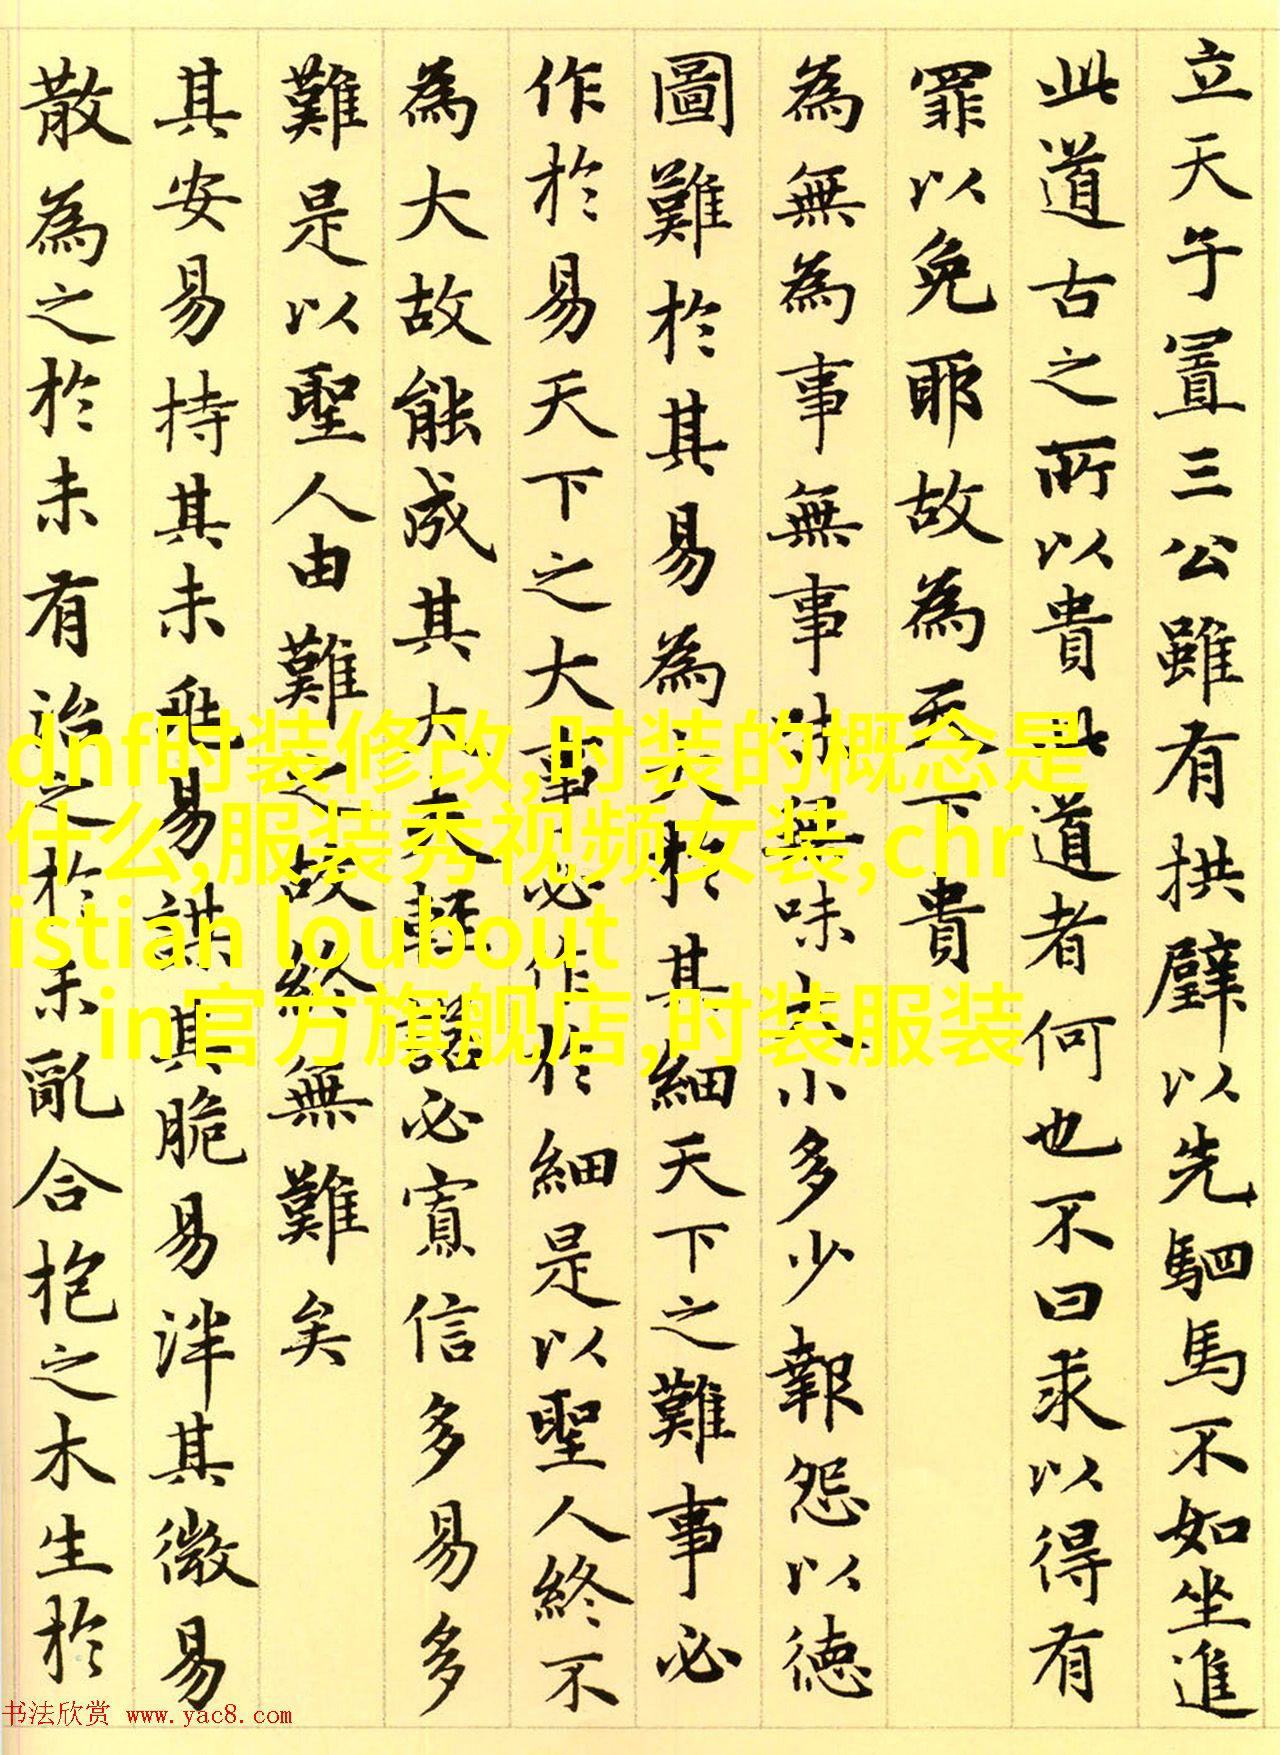 立天子置三公雖有拱璧以先駟馬不如坐進
此道古之所以貴此道者何也不曰求以得有
罪以免耶故為天下貴
為無為事無事味無味大小多少報怨以徳
圖難於其易為大於其細天下之難事必
作於易天下之大事必作於細是以聖人終不
為大故能成其大夫輕諾必寡信多易多
難是以聖人由難之故終無難矣
其安易持其未兆易謀其脆易泮其微易
散為之於未有治之於未亂合抱之木生於
dnf时装修改,时装的概念是
什么,服装秀视频女装,chr
istian loubout
in官方旗舰店,时装服装
书法欣赏 www.yac8.com